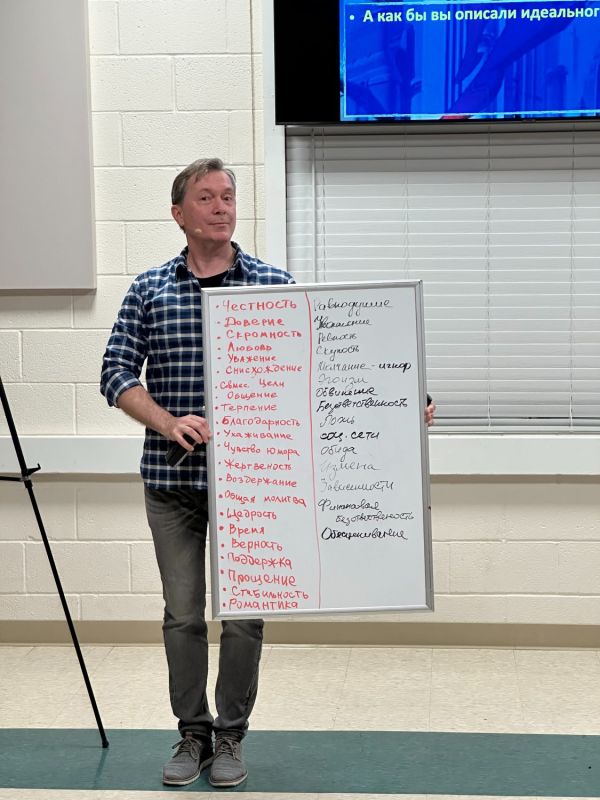 • А как бы вы описали идеального
• Честность
• Доверие
• Скромность
• Любовь
• Уважение
• Снисхождение
• Совмес. Цели
• Общение
• Терпение
• Благодарность
• Ухаживание
• Чувство юмора
• Жертвеность
• Воздержание
• Общая молитва
• Щедрость
• Время
• Верность
• Поддержка
• Прощение
• Стабильность
• Романтика
Равнодушие
Ревность
Скупость
Молчание-игнор
Эгоизм
Обвинение
Безответственность
Ложь
соц. сети
Обида
Измена
Зависимости
Финансовая
Обесценивание